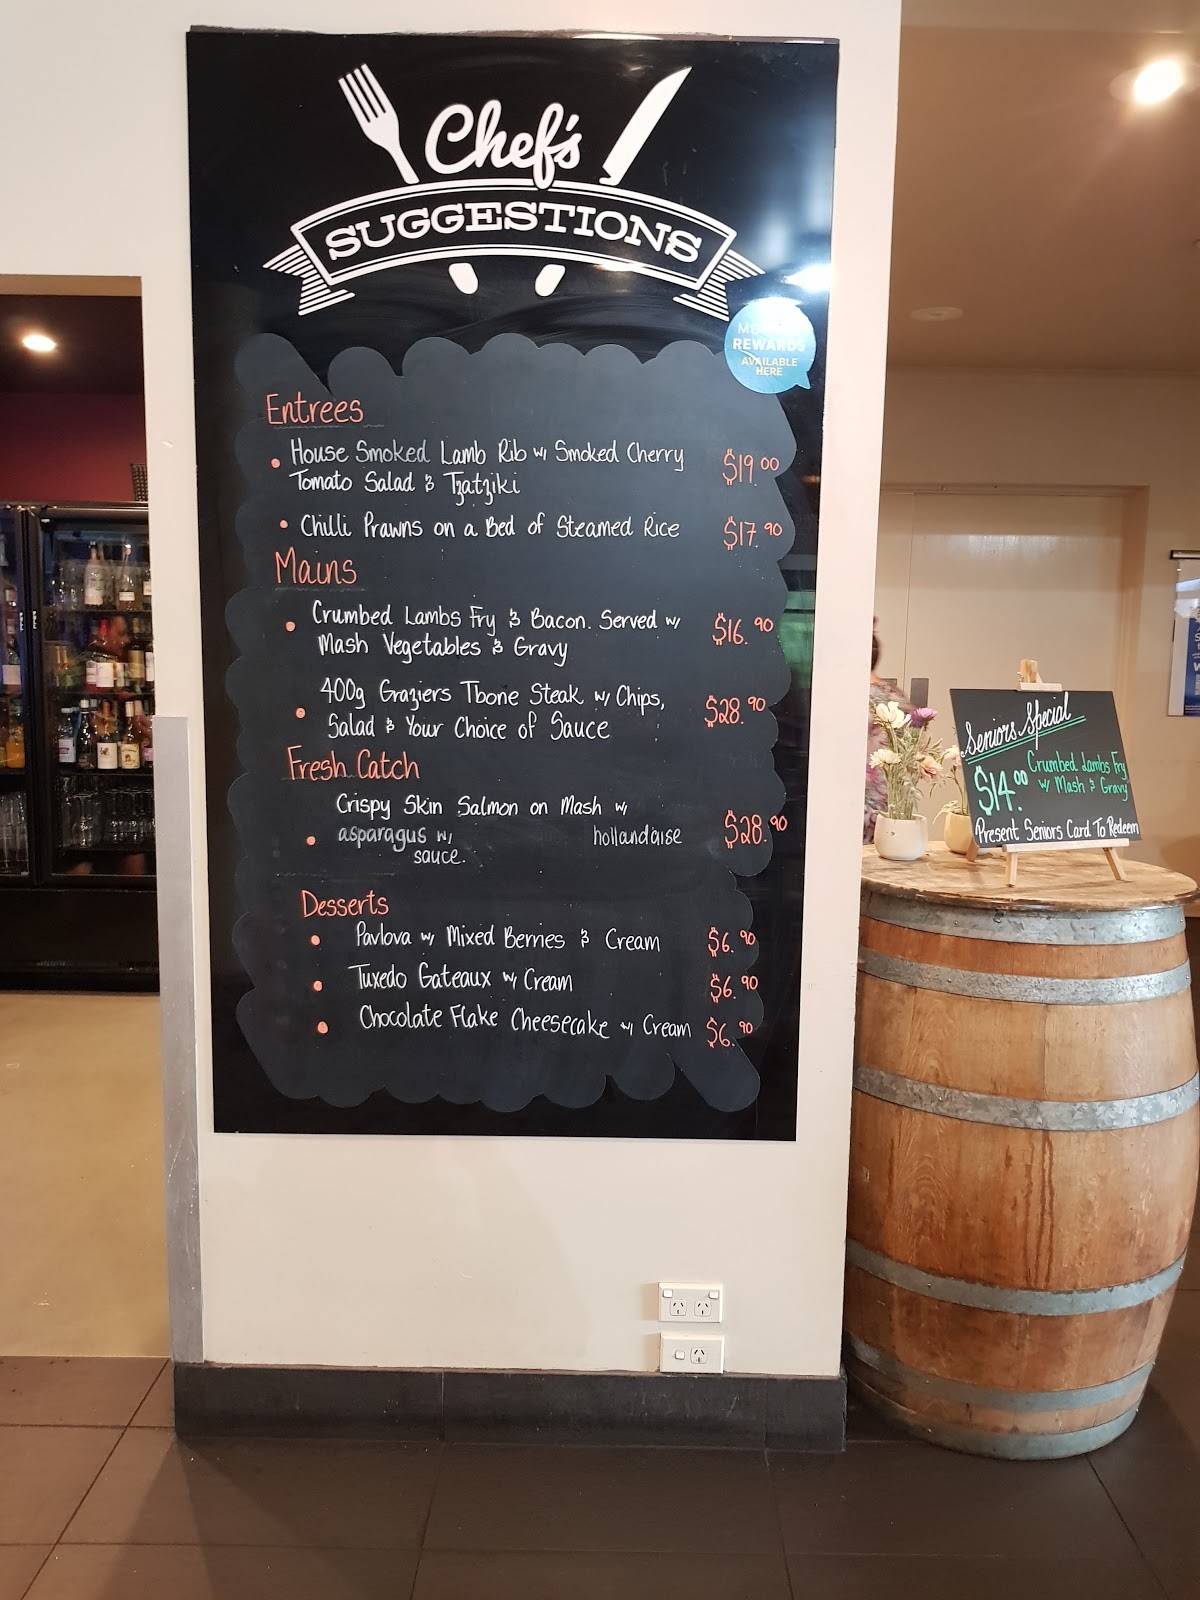 Chef's
SUGGESTIONS
REWARDS
AVAILABLE
HERE
Entrees
• House Smoked Lamb Rib w/ Smoked Cherry $19.00
Tomato Salad & Tzatziki
• Chilli Prawns on a Bed of Steamed Rice $17.90
Mains
• Crumbed Lambs Fry & Bacon. Served w/ $16.90
Mash Vegetables & Gravy
• 400g Graziers Tbone Steak w/ Chips, $28.90
Salad & Your Choice of Sauce
Fresh Catch
Crispy Skin Salmon on Mash w/
• asparagus w/ hollandaise $28.90
sauce.
Desserts
• Pavlova w/ Mixed Berries & Cream $6.90
• Tuxedo Gateaux w/ Cream $6.90
• Chocolate Flake Cheesecake w/ Cream $6.90
Seniors Special
$14.00 Crumbed Lambs Fry
w/ Mash & Gravy
Present Seniors Card To Redeem